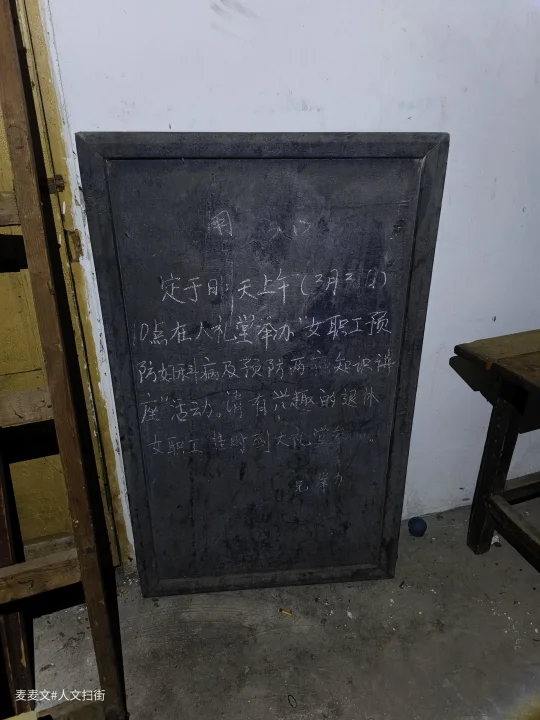 定于明天上午(3月2日)
10点在大礼堂举办“女职工预
防妇科病及预防两 知识讲
座”活动。请有兴趣的退休
女职工准时到大礼堂
举办
麦麦文#人文扫街